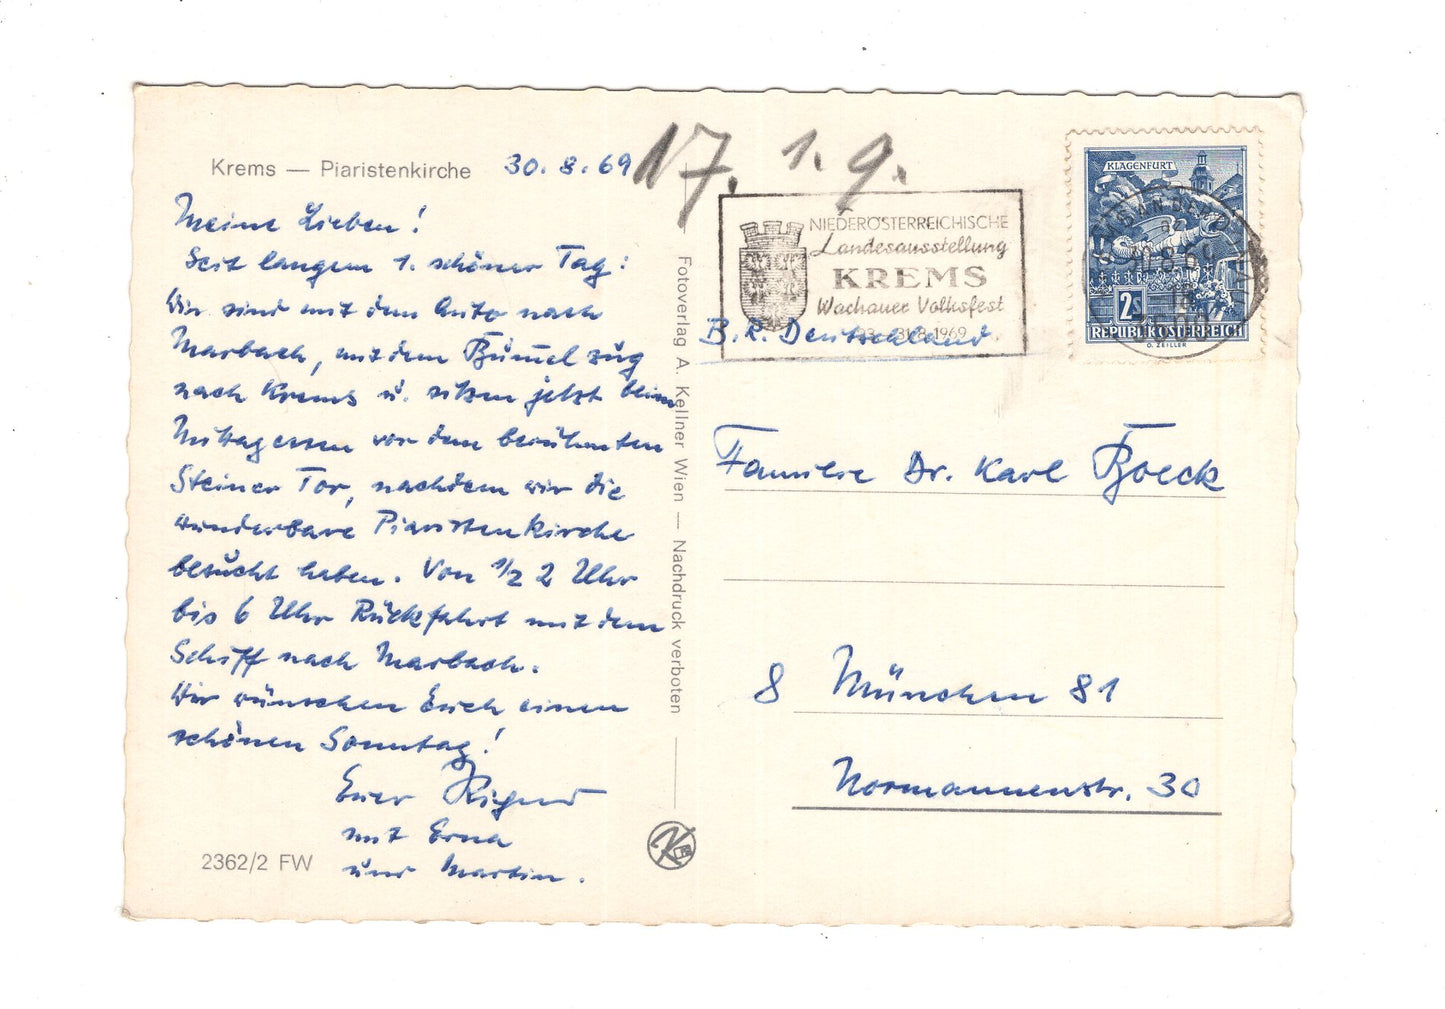 Krems — Piaristenkirche 30.8.69
17. 1. 9.
Meine Lieben!
Seit langem 1. schöner Tag:
Wir sind mit dem Auto nach
Marbach, mit dem Bummelzug
nach Krems u. sitzen jetzt beim
Mittagessen vor dem berühmten
Steiner Tor, nachdem wir die
wunderbare Piaristenkirche
besucht haben. Von 1/2 2 Uhr
bis 6 Uhr Rückfahrt mit dem
Schiff nach Marbach.
Wir wünschen Euch einen
schönen Sonntag!
Euer
mit Erna
und Martin.
2362/2 FW
Fotoverlag A. Kellner Wien — Nachdruck verboten
NIEDERÖSTERREICHISCHE
Landesausstellung
KREMS
Wachauer Volksfest
31.8.1969
KLAGENFURT
2S
REPUBLIK ÖSTERREICH
O. ZEILLER
B.R. Deutschland
Familie Dr. Karl Boeck
8 München 81
Normannenstr. 30